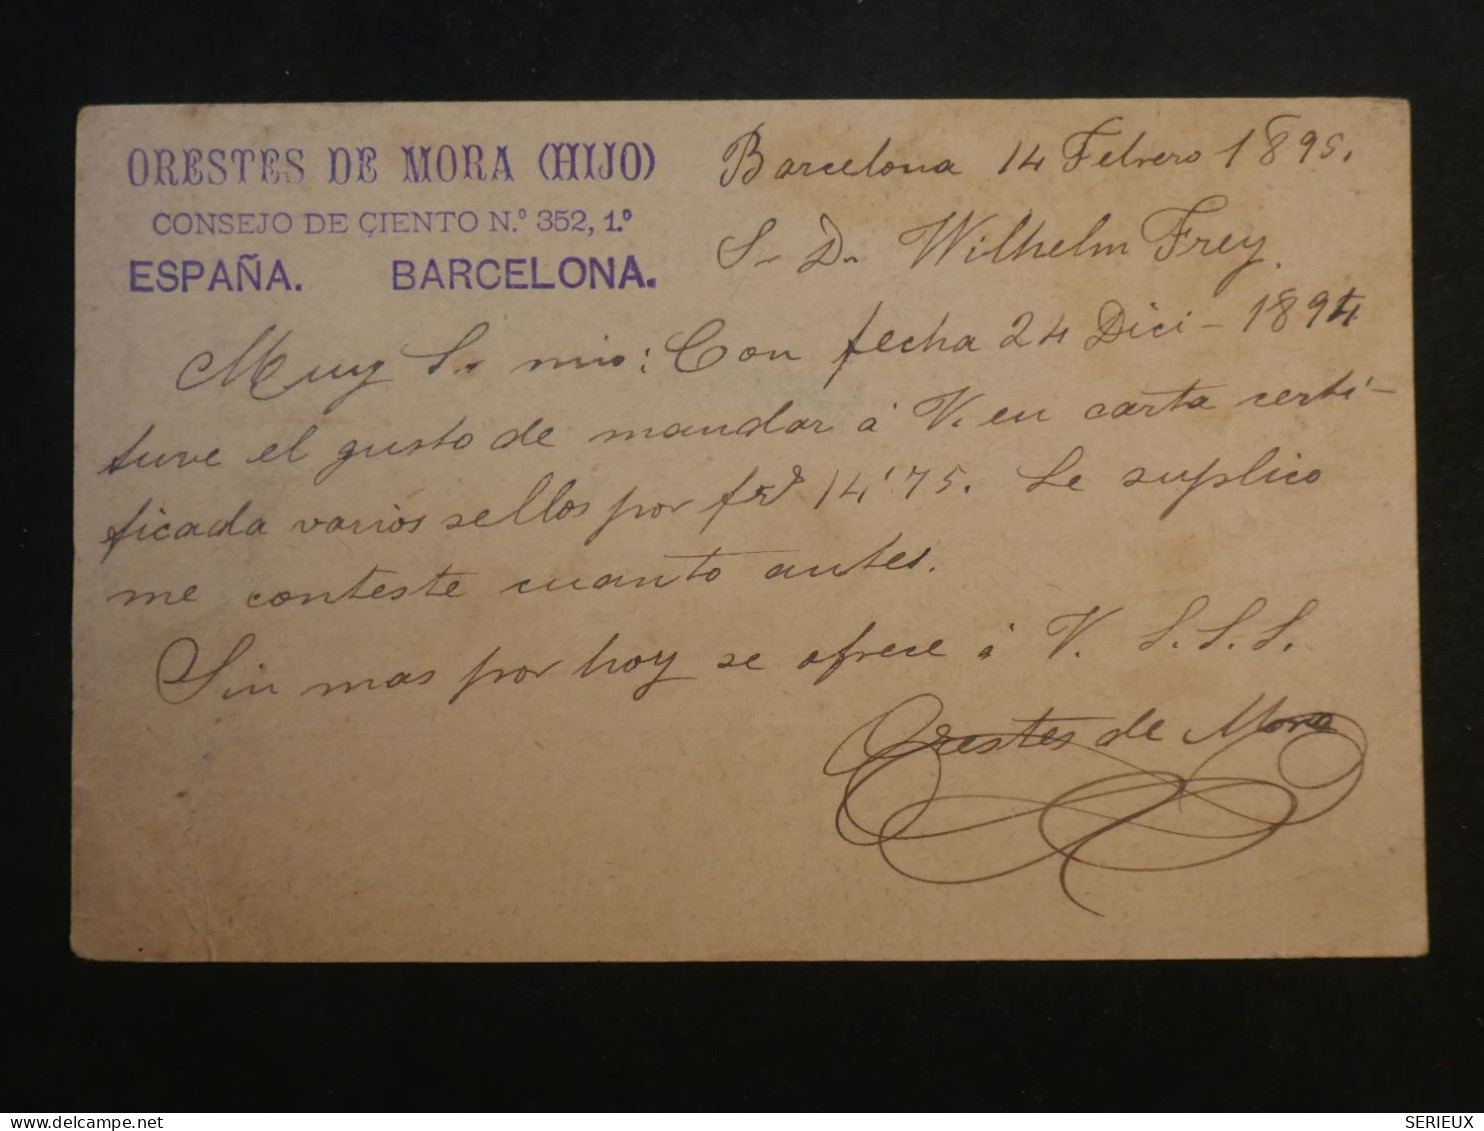 ORESTES DE MORA (HIJO)
CONSEJO DE ÇIENTO N.º 352, 1.º
ESPAÑA. BARCELONA.
Barcelona 14 Febrero 1895.
S. Dn. Wilhelm Frey.
Muy Sr. mio: Con fecha 24 Dici - 1894
tuve el gusto de mandar á V. en carta certi-
ficada varios sellos por frs 14'75. Le suplico
me conteste cuanto antes.
Sin mas por hoy se ofrece á V. S. S. S.
Orestes de Mora
SERIEUX